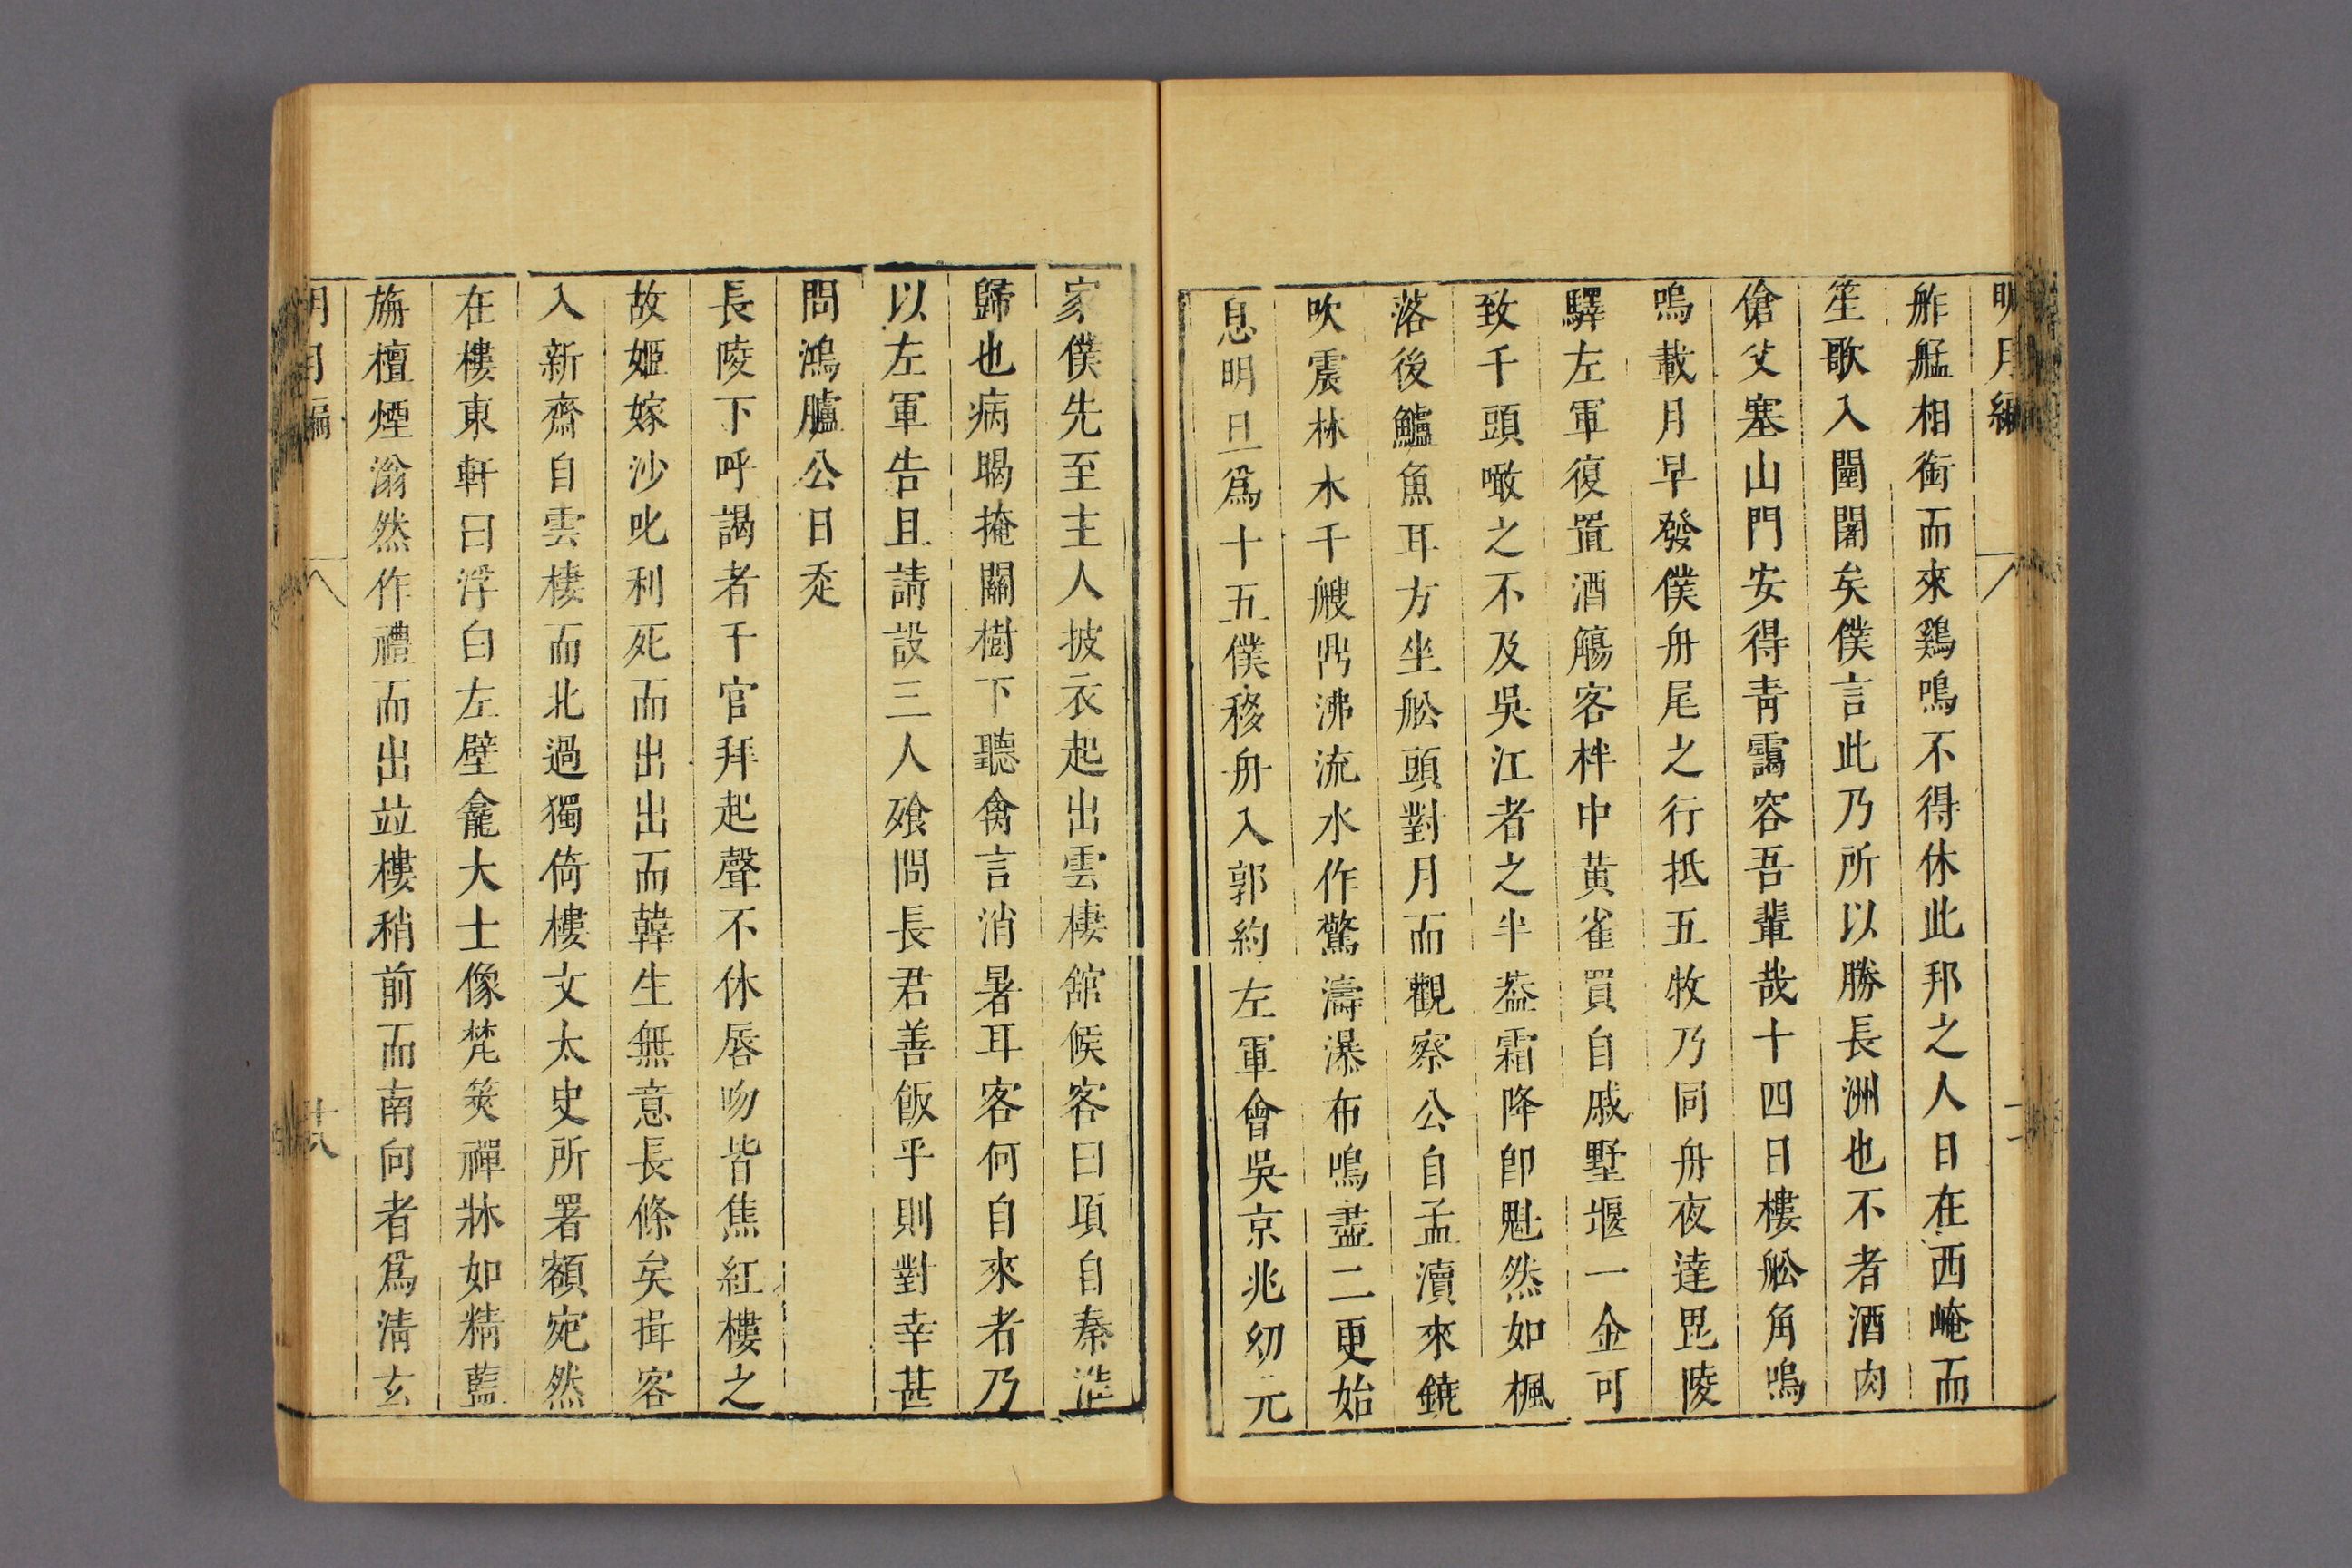 明月編
舴艋相銜而來鷄鳴不得休此邦之人日在西崦而
笙歌入闤闠矣僕言此乃所以勝長洲也不者酒肉
傖父塞山門安得靑靄容吾輩哉十四日樓舩角嗚
嗚載月早發僕舟尾之行抵五牧乃同舟夜達毘陵
驛左軍復置酒觴客柈中黄雀買自戚墅堰一金可
致千頭噉之不及吳江者之半葢霜降卽魁然如楓
落後鱸魚耳方坐舩頭對月而觀察公自孟瀆來鐃
吹震林木千艘鼎沸流水作驚濤瀑布鳴盡二更始
息明旦爲十五僕移舟入郭約左軍會吳京兆幼元
家僕先至主人披衣起出雲棲舘候客曰項自秦淮
歸也病暍掩關樹下聽禽言消暑耳客何自來者乃
以左軍告且請設三人飧問長君善飯乎則對幸甚
問鴻臚公日䄵
長陵下呼謁者千官拜起聲不休唇吻皆焦紅樓之
故姬嫁沙叱利死而出出而韓生無意長條矣揖客
入新齋自雲棲而北過獨倚樓文太史所署額宛然
在樓東軒曰浮白左壁龕大士像梵筴禪牀如精藍
旃檀煙滃然作禮而出竝樓稍前而南向者爲淸玄
明月編
十八